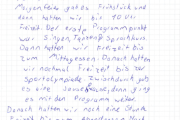 Morgenteile gutes Frühstück und
dann hatten wir bis 10 Uhr
Freizeit. Der erste Programmpunkt
war Singen, Tanzen & Sprachkurs.
Dann hatten wir Freizeit bis
zum Mittagessen. Danach hatten
wir nochmal Freizeit bis zur
Sportolympiade. Zwischendurch gab
es eine , dann ging
es mit dem Programm weiter.
Danach hatten wir noch eine Stunde
Freizeit bis zum Abendessen. Nach